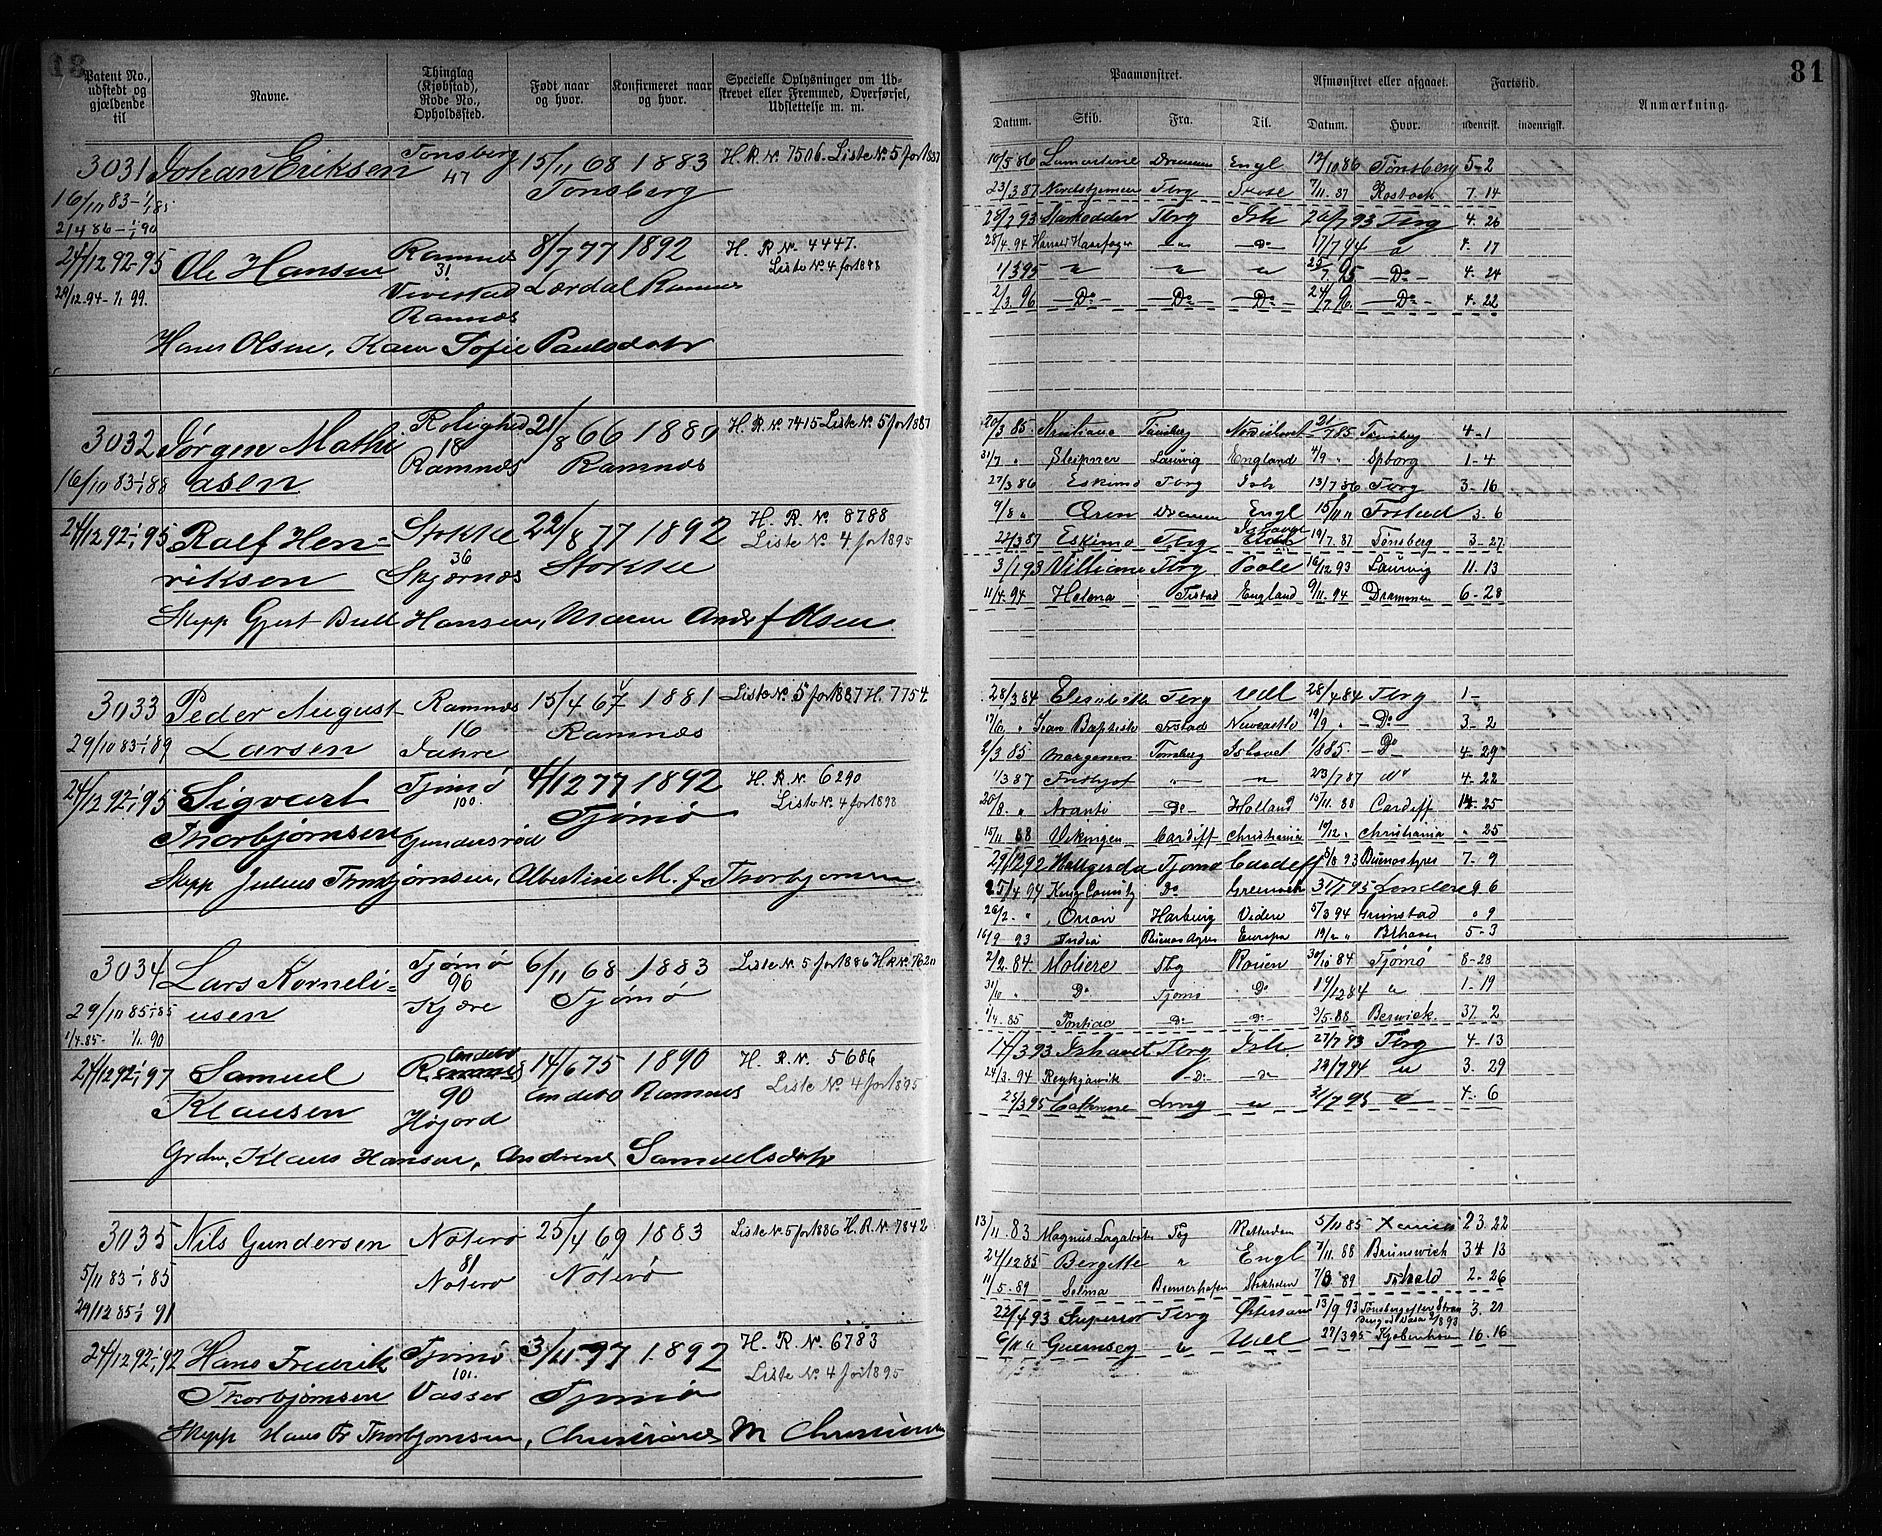 81
Patent No., udstedt og gjældende til
Navne.
Thinglag (Kjøbstad), Rode No., Opholdssted.
Født naar og hvor.
Konfirmeret naar og hvor.
Specielle Oplysninger om Udskrevet eller Fremmed, Overførsel, Udslettelse m. m.
Paamønstret.
Afmønstret eller afgaaet.
Fartstid.
Anmærkning.
Datum. Skib. Fra. Til. Datum. Hvor. udenrigst. indenrigst.
3031 Johan Eriksen Tønsberg 47 15/11 68 1883 H. R. No. 7506. Liste No. 5 for 1887
16/10 83-1/1 85 Tønsberg
21/4 86-1/1 90
24/12 92-95 Ole Hansen Ramnes 8/7 77 1892 H. R. No. 4447.
31 Liste No. 4 for 1898
29/12 94-1/1 99. Vivestad Lørdal Ramnes
Ramnæs
Hans Olsen, Karen Sofie Paulsdatr
3032 Jørgen Mathi Rolighed 21/8 66 1880 H. R. No. 7415 Liste No. 5 for 1887
18
16/10 83-1/1 88 asen Ramnæs Ramnæs
24/12 92-1/1 95 Ralf Hen- Stokke 22/8 77 1892 H. R. No. 8788
36 Liste No. 4 for 1895
riksen Skjærnæs Stokke
Skipp Gjert Bull Hansen, Maren And. f. Olsen
3033 Peder August Ramnæs 15/4 67 1881 Liste No. 5 for 1887 H. 7754.
16
29/10 83-1/1 89 Larsen Jahre Ramnæs
24/12 92-1/1 95 Sigvart Tjømø 4/12 77 1892 H. R. No. 6290
100. Liste No. 4 for 1898
Thorbjørnsen Gundersrød Tjømø
Skipp Julius Thorbjørnsen, Albertine M. f. Thorbjørnsen
3034 Lars Korneli- Tjømø 6/11 68 1883 Liste No. 5 for 1886
96
29/10 83-1/1 85 usen Kjære Tjømø
1/4 85- 1/1 90
24/12 92-1/1 97 Samuel Andebo 14/6 75 1890 H. R. No. 5686
90 Liste No. 4 for 1895
Klausen Høijord Andebo Ramnes
Grdbr. Klaus Hansen, Andrine Samuelsdatr
3035 Nils Gundersen Nøterø 25/4 69 1883 Liste No. 5 for 1886 H. R. No. 7842
81
5/11 83-1/1 85 Nøterø Nøterø
29/12 85-1/1 91
24/12 92-1/1 97 Hans Fredrik Tjømø 1892 H. R. No. 6783
101. Liste No. 4 for 1895
Thorbjørnsen Vasser Tjømø
Skipp Hans Fr Thorbjørnsen, M Christensen
10/5 86 Lamartine Drammen Engl 12/10 86 Tønsberg 5-2
23/3 87 Tbrg 7/11 87 Rostock 7. 14
Tbrg Ish 26/7 93 Tbrg 4. 26
28/4. 94 Harald Haarfager " Do 17/7 94 " 4. 17
1/3 95 " " " 25/7. 95 Do 4. 24
2/3. 96 Do Do Do 24/7 96. Do 4. 22
20/3 85 Kristiane Tønsberg Nordishavet 21/7 85 Tønsberg 4-1
31/7 " Sleipner Laurvig England 4/9 " Spborg 1-4
27/3 86 Eskimo Tbrg Ish 13/7 86 Tbrg 3-16
9/8 " Drammen Engl 15/11 " Frstad 3.6
22/3 87 Eskimo Tbrg Ishavet 19/7. 87 Tønsberg 3-27
3/1 93 Tbrg Poole 16/12 93 Laurvig 11. 13
11/4. 94 Helena Frstad England 9/11. 94 Drammen 6-28
28/3 84 Elisabeth Tbrg Udl 28/4 84 Tbrg 1-
17/6 " Jean Baptiste Frstad Newcastle 19/9 " Do 3-2
2/3 85 Tønsberg Ishavet 1/8 85 Do 4-29
1/3 87 Fridtjof " " 23/7 87 4-22
20/8. " Avanti Do Holland 15/11 88 Cardiff 14-25
15/11 88 Vikingen Cardiff Christiania 10/12 " Christiania " 25
29/12 92 Hallgerda Tjømø Cardiff 5/8 93 Buenos Ayres 7. 9
25/4 94 Do Greenock 31/1 95 9 6
26/2. " Orion Harburg 5/3 94 Grimstad " 9
16/9 93 India Buenos Ayres Europa 19/2 " Brhaven 5-3
2/2. 84. Moliere Tbg Rouen 30/10 84 Tjømø 8-28
31/10 " Do Tjømø Do 19/12 84 " 1-19
1/4 85 Pontiac Do Do 3/5. 88 Berwick. 37. 2
17/3 93 Ishavet Tbrg Ish 27/7 93 Tbrg 4-13
24/3. 94 Reykjavik Do Do 29/7 94 " 3. 29
23/3 95 Cathrine " 4-6
13/11. 83 Magnus Lagabøte Tbg Rotterdam 5/11 85 23. 22
24/12 85 Bergitte " Engl 7/11. 88 Brunswick 34. 13
11/5. 89 Selma Bremerhafen Stokholm 7/8. 89 2-26
22/4 93 Superior Tbrg 13/9 93 3. 21
6/11 " Guernsey " Udl 27/3 95 Kjøbenhavn 16. 16